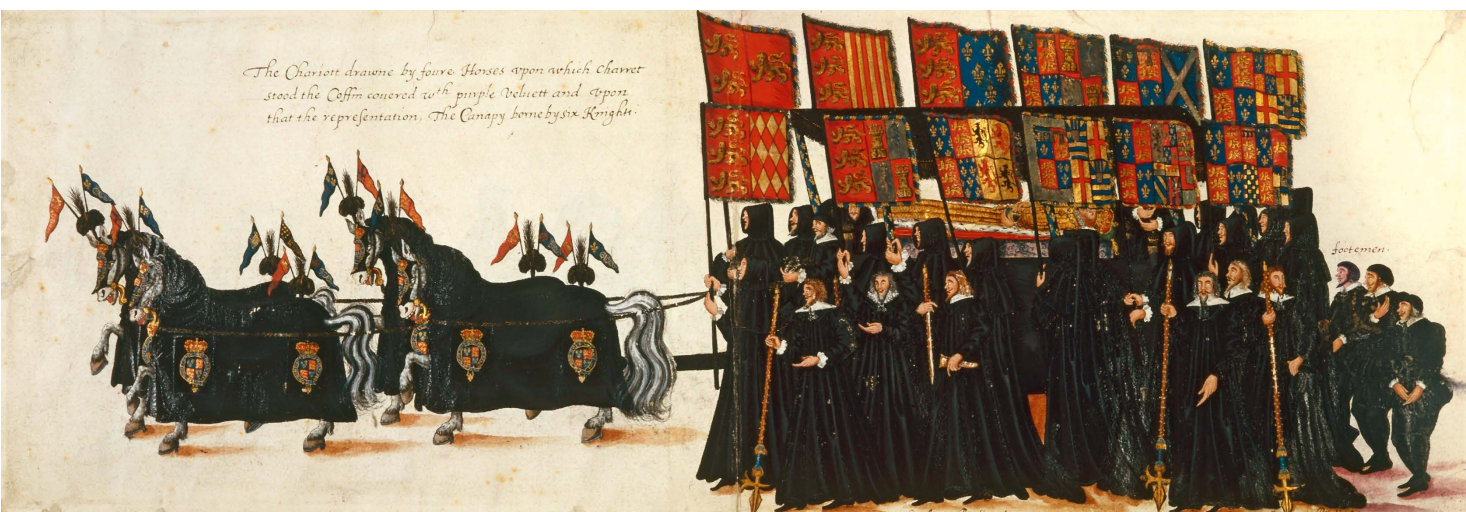 The Chariott drawne by foure Horses vpon which Charret
stood the Coffin couered wth purple Veluett and vpon
that the representation, The Canapy borne by six Knights.
footemen.